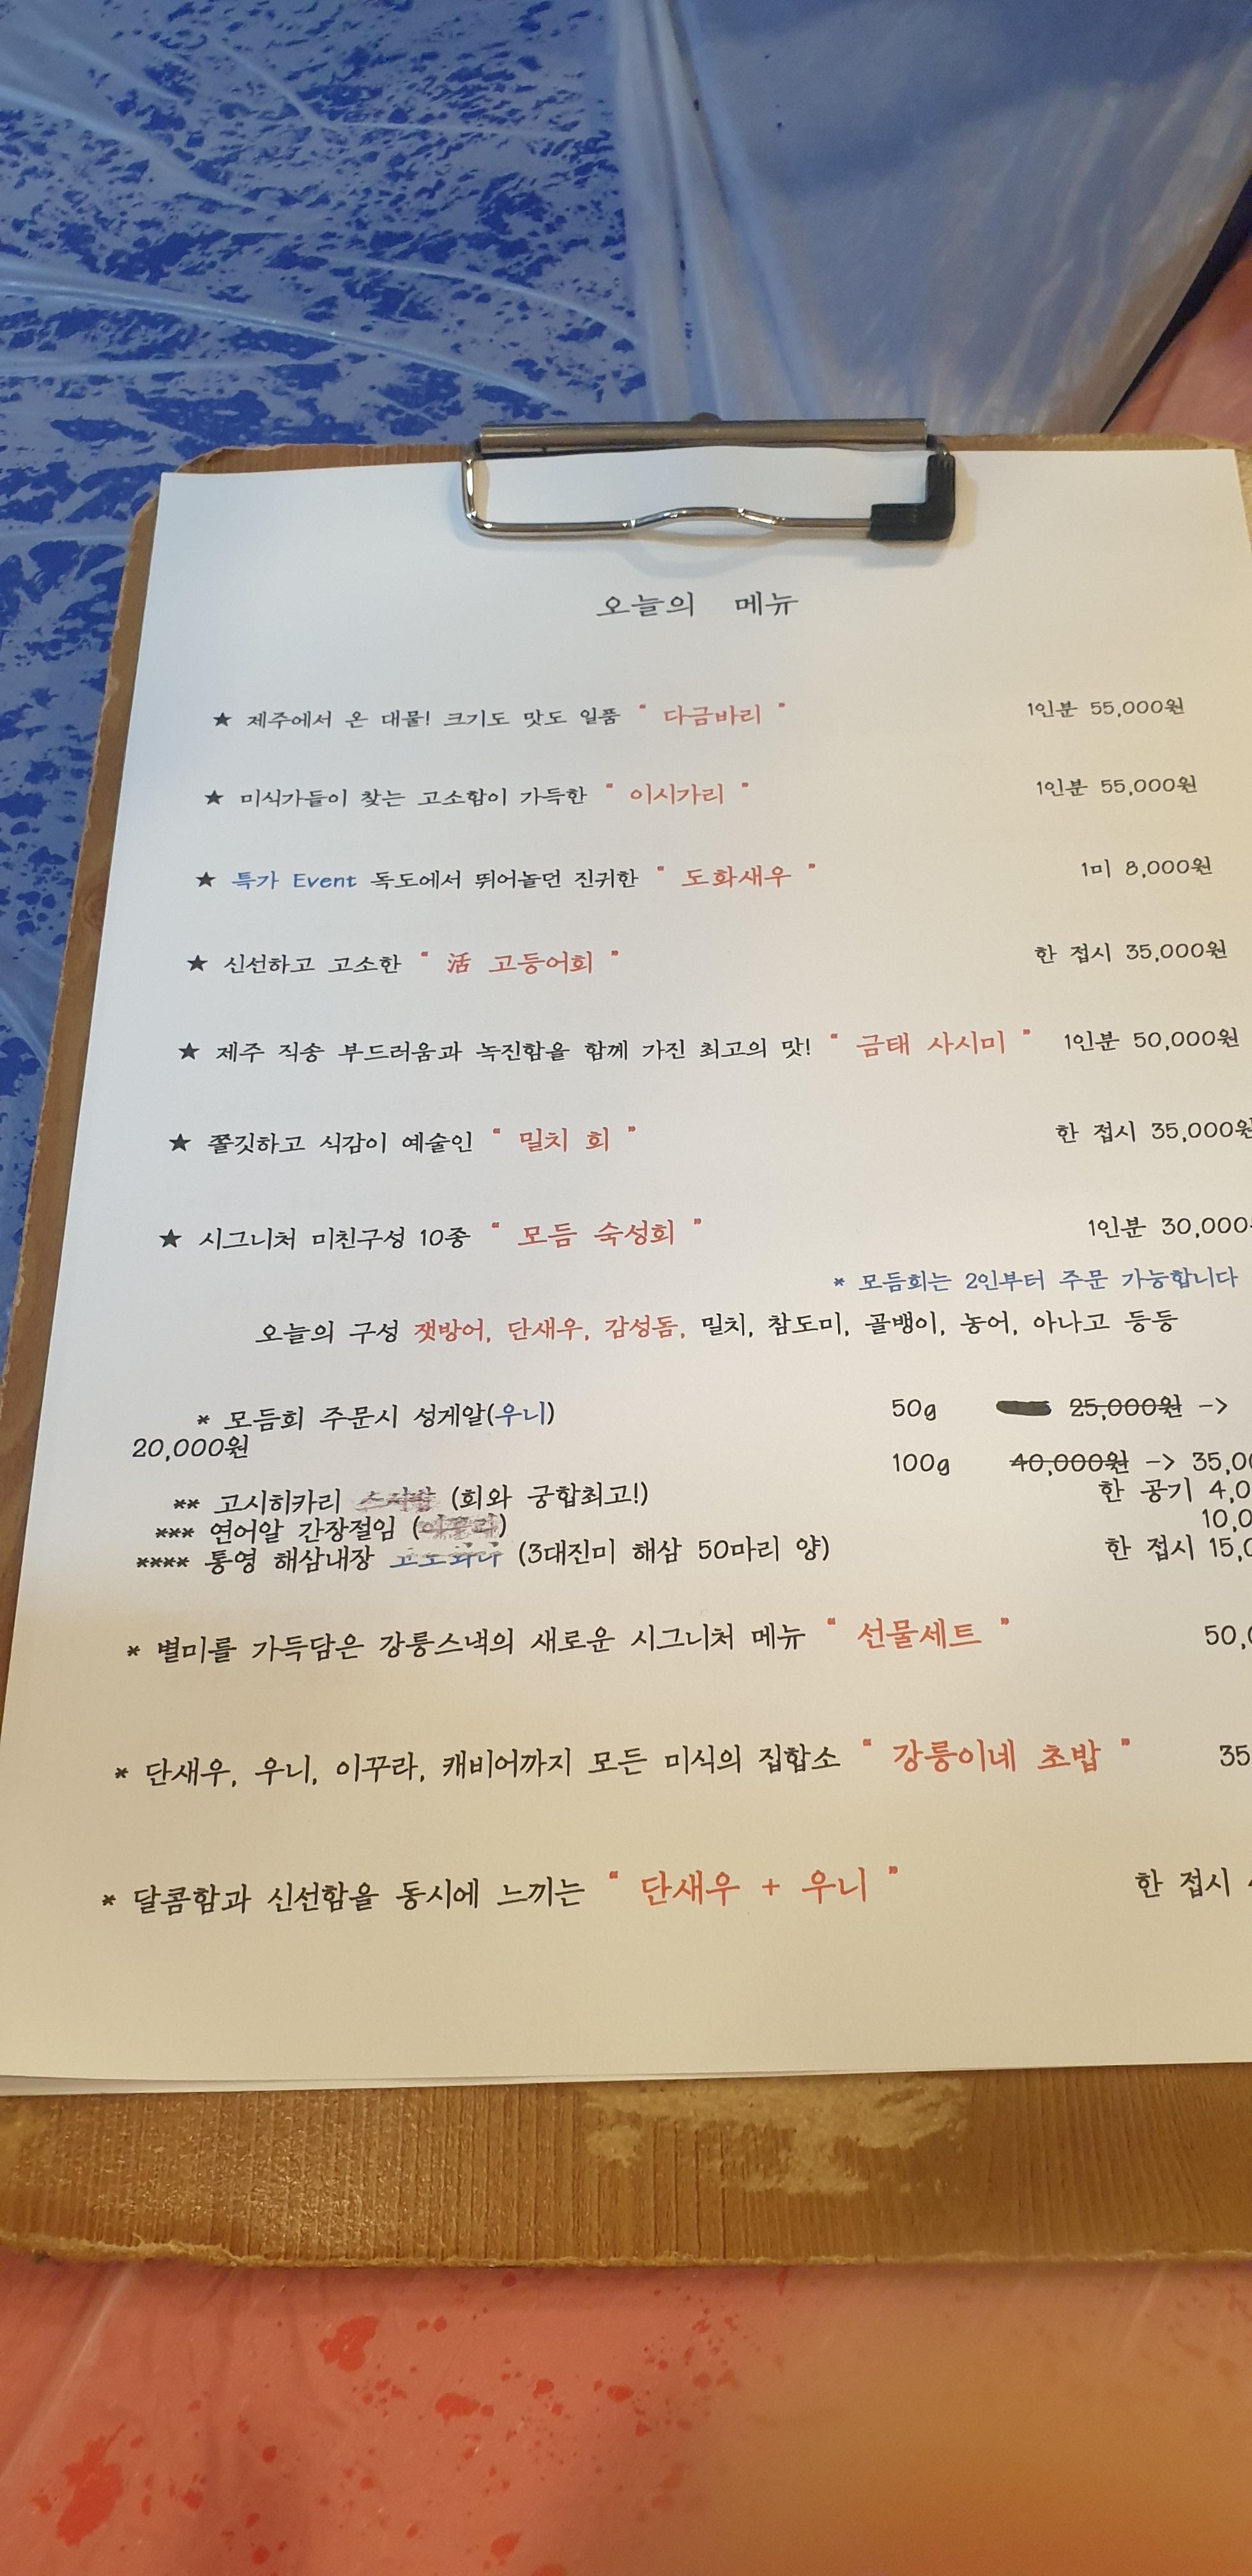 오늘의 메뉴
★ 제주에서 온 대물! 크기도 맛도 일품 " 다금바리 " 1인분 55,000원
★ 미식가들이 찾는 고소함이 가득한 " 이시가리 " 1인분 55,000원
★ 특가 Event 독도에서 뛰어놀던 진귀한 " 도화새우 " 1미 8,000원
★ 신선하고 고소한 " 活 고등어회 " 한 접시 35,000원
★ 제주 직송 부드러움과 녹진함을 함께 가진 최고의 맛! " 금태 사시미 " 1인분 50,000원
★ 쫄깃하고 식감이 예술인 " 밀치 회 " 한 접시 35,000원
★ 시그니처 미친구성 10종 " 모듬 숙성회 " 1인분 30,000
* 모듬회는 2인부터 주문 가능합니다
오늘의 구성 잿방어, 단새우, 감성돔, 밀치, 참도미, 골뱅이, 농어, 아나고 등등
* 모듬회 주문시 성게알(우니) 50g 25,000원 ->
20,000원
100g 40,000원 -> 35,00
** 고시히카리 (회와 궁합최고!) 한 공기 4,0
*** 연어알 간장절임 10,0
**** 통영 해삼내장 (3대진미 해삼 50마리 양) 한 접시 15,0
* 별미를 가득담은 강릉스낵의 새로운 시그니처 메뉴 " 선물세트 " 50,
* 단새우, 우니, 이꾸라, 캐비어까지 모든 미식의 집합소 " 강릉이네 초밥 " 35
* 달콤함과 신선함을 동시에 느끼는 " 단새우 + 우니 " 한 접시